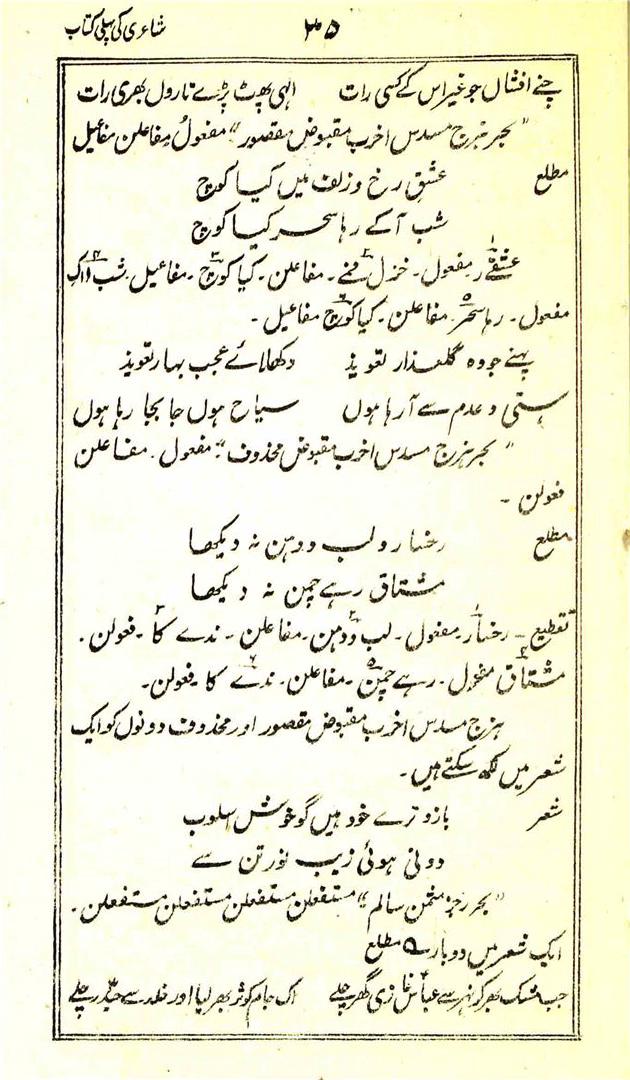 شاعری کی پہلی کتاب ۳۵
چنے افشاں جو غیر اس کے کسی رات الہی پھٹ پڑے تاروں بھری رات
”بحر ہزج مسدس اخرب مقبوض مقصور“ مفعولُ مفاعلن مفاعیل
مطلع عشقِ رخ و زلف میں کیا کوچ
شب آکے رہا سحر کیا کوچ
عشقے ر مفعول۔ خزل فمے۔ مفاعلن۔ کیا کوچ۔ مفاعیل۔ شب ااک
مفعول۔ رہا سحر۔ مفاعلن۔ کیا کوچ مفاعیل۔
پہنے جو وہ گلعذار تعویذ دکھلائے عجب بہار تعویذ
ہستی و عدم سے آ رہا ہوں سیاح ہوں جا بجا رہا ہوں
”بحر ہزج مسدس اخرب مقبوض محذوف“۔ مفعول۔ مفاعلن
فعولن۔
مطلع رخسار و لب و دہن نہ دیکھا
مشتاق رہے چمن نہ دیکھا
تقطیع۔ رخسار۔ مفعول۔ لب ودہن۔ مفاعلن۔ ندے کا۔ فعولن۔
مشتاق مفعول۔ رہے چمن۔ مفاعلن۔ ندے کا۔ فعولن۔
ہزج مسدس اخرب مقبوض مقصور اور محذوف دونوں کو ایک
شعر میں لکھ سکتے ہیں۔
شعر بازو ترے خود ہیں گو خوش اسلوب
دونی ہوئی زیب نورتن سے
”بحر رجز مثمن سالم“ مستفعلن مستفعلن مستفعلن مستفعلن۔
ایک شعر میں دوبار۔ مطلع
جب مشک بھر کر نہر سے عباس غازی گھر چلے اک جام کوثر بھر لیا اور خلد سے حیدر چلے